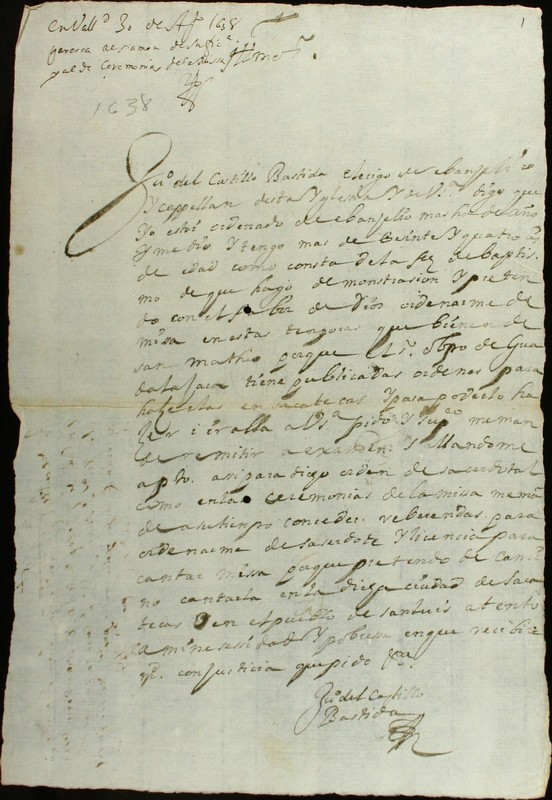 en Vall.d 30 de Ag.to 1638
y al de Ceremonias de la Missa
1
1638
Ju.o del Castillo Bastida clerigo de ebanjelio
Y cappellan desta Yglesia Y de V. S.a digo que
Yo estoi ordenado de ebanjelio mas ha de año
Y medio Y tengo mas de beinte Y quatro a.s
de edad como consta de la fee de baptis
mo de que hago demonstrasion Y preten
do con el fabor de Dios ordenarme de
misa en estas temporas que bienen de
san matheo porque el S.r obpo de Gua
dalajara tiene publicadas ordenes para
hazerlas en sacatecas Y para poderlo ha
zer i ir alla a V S.a pido Y sup.co me man
de remitir a examen Y allandome
apto. asi para dicho orden de sacerdotal
como en las ceremonias de la missa me man
de a su tiempo conceder reberendas para
ordenarme de saserdote Y licencia para
cantar missa porque pretendo de cami
no cantarla en la dicha ciudad de Saca
tecas o en el pueblo de san luis atento
a mi nesesidad Y pobresa en que recibire
m.d con justicia que pido &c.a
Ju.o del Castillo
Bastida